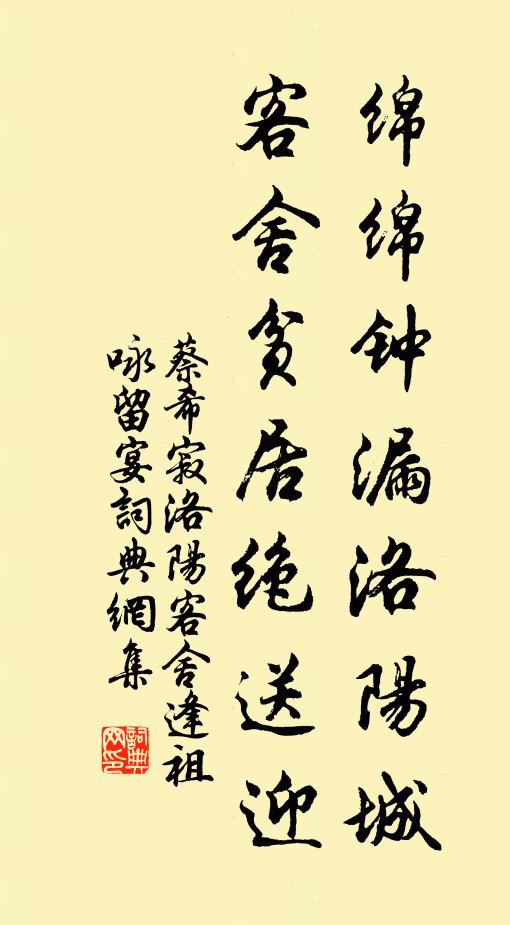 绵绵钟漏洛陽城
客舍贫居绝送迎
蔡希寂洛陽客舍逢祖
咏留宴詞典網集
詞典
网印